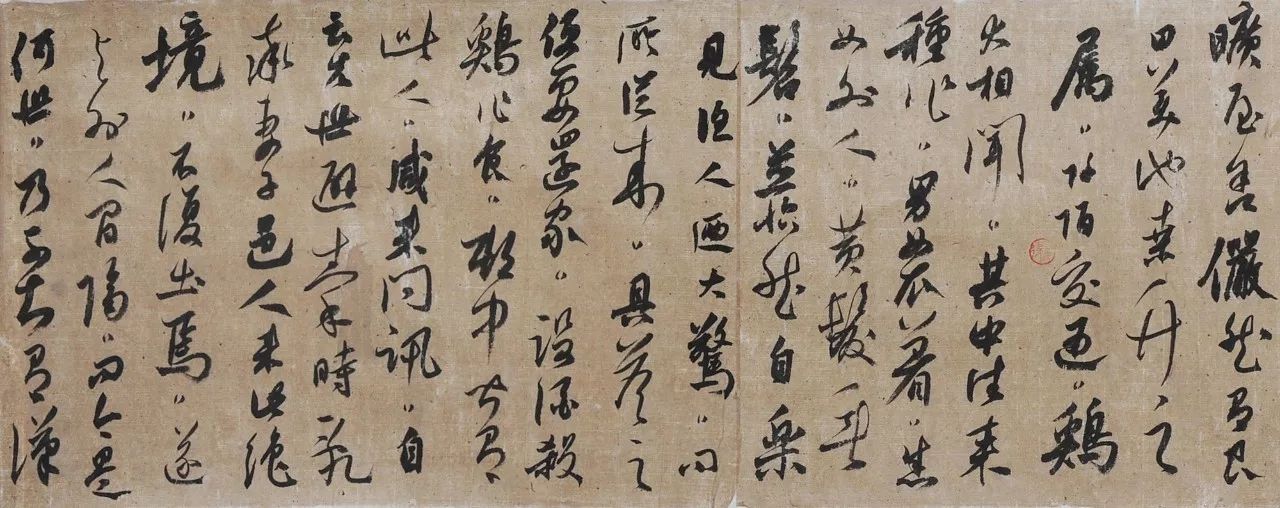 曠屋舍儼然有良
田美池桑竹之
屬阡陌交通鷄
犬相聞其中往來
種作男女衣着悉
如外人黃髮垂
髫並怡然自樂
見漁人迺大驚問
所從來具答之
便要還家設酒殺
鷄作食村中聞有
此人咸來問訊自
云先世避秦時亂
率妻子邑人來此絕
境不復出焉遂
與外人間隔問今是
何世乃不知有漢